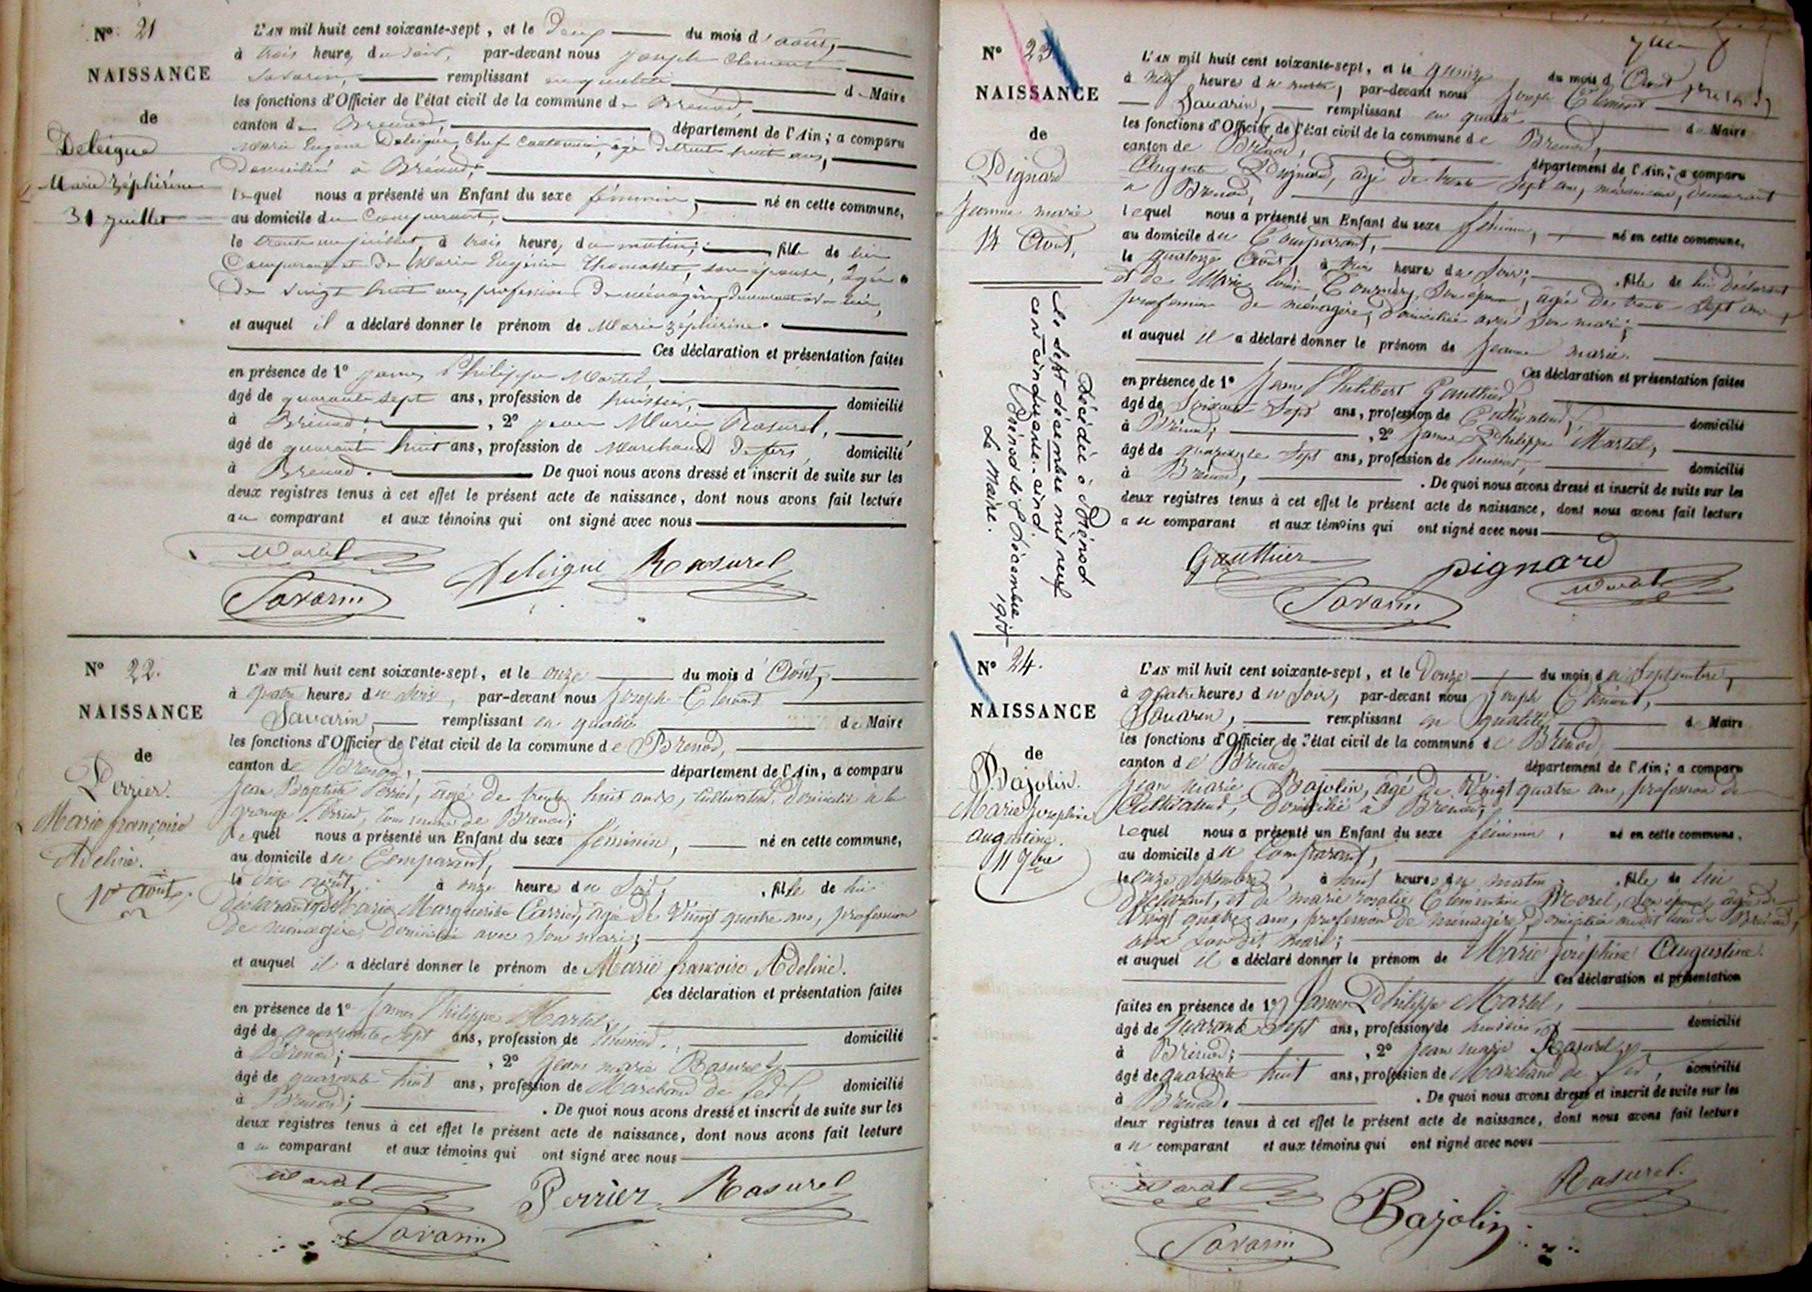 N° 21
NAISSANCE
de
Deleigue
Marie Zéphirine
31 juillet
L'AN mil huit cent soixante-sept, et le Deux du mois d'août,
à trois heures du soir, par-devant nous Joseph Clément
Savarin, remplissant en qualité de Maire
les fonctions d'Officier de l'état civil de la commune de Brénod,
canton de Brénod, département de l'Ain; a comparu
Marie Eugène Deleigue, Chef Cantonnier, âgé de trente huit ans,
domicilié à Brénod;
lequel nous a présenté un Enfant du sexe féminin, né en cette commune,
au domicile du Comparant,
le trente un juillet, à trois heures du matin; fille de lui
Comparant et de Marie Eugénie Thomasset, son épouse, âgée
de vingt huit ans, profession de ménagère, demeurant avec lui,
et auquel il a déclaré donner le prénom de Marie Zéphirine.
Ces déclaration et présentation faites
en présence de 1° James Philippe Martel,
âgé de quarante sept ans, profession de huissier, domicilié
à Brénod; , 2° Jean Marie Rasurel,
âgé de quarante huit ans, profession de Marchand de fer, domicilié
à Brenod. De quoi nous avons dressé et inscrit de suite sur les
deux registres tenus à cet effet le présent acte de naissance, dont nous avons fait lecture
au comparant et aux témoins qui ont signé avec nous
Martel Deleigue Rasurel
Savarin
N° 22.
NAISSANCE
de
Perrier.
Marie françoise
Adeline.
10 août.
L'AN mil huit cent soixante-sept, et le onze du mois d'Août,
à quatre heures du soir, par-devant nous Joseph Clément
Savarin, remplissant en qualité de Maire
les fonctions d'Officier de l'état civil de la commune de Brenod,
canton de Brenod, département de l'Ain, a comparu
Jean Baptiste Perrier, âgé de trente huit ans, Cultivateur, Domicilié à la
grange Perrier, commune de Brenod;
lequel nous a présenté un Enfant du sexe féminin, né en cette commune,
au domicile du Comparant,
le dix août, à onze heures du soir, fille de lui
déclarant et de Marie Marguerite Carrier, âgée de Vingt quatre ans, profession
de ménagère, domiciliée avec son mari;
et auquel il a déclaré donner le prénom de Marie françoise Adeline.
Ces déclaration et présentation faites
en présence de 1° James Philippe Martel,
âgé de quarante sept ans, profession de huissier, domicilié
à Brenod; , 2° Jean marie Rasurel,
âgé de quarante huit ans, profession de Marchand de fer, domicilié
à Brenod; . De quoi nous avons dressé et inscrit de suite sur les
deux registres tenus à cet effet le présent acte de naissance, dont nous avons fait lecture
au comparant et aux témoins qui ont signé avec nous
Martel Perrier Rasurel
Savarin
N° 23
NAISSANCE
de
Pignard
Jeanne marie
14 Août,
Décédée à Brénod
le sept décembre mil neuf
cent cinquante-cinq.
Brénod le 8 décembre 1955
Le Maire.
L'AN mil huit cent soixante-sept, et le quinze du mois d'Août
à neuf heures du matin, par-devant nous Joseph Clément
Savarin, remplissant en qualité de Maire
les fonctions d'Officier de l'état civil de la commune de Brenod,
canton de Brénod, département de l'Ain; a comparu
Auguste Pignard, âgé de trente sept ans, demeurant
à Brenod,
lequel nous a présenté un Enfant du sexe féminin, né en cette commune,
au domicile du Comparant,
le quatorze Août, à heures du soir; fille de lui déclarant
et de Marie Louise son épouse, âgée de trente sept ans,
profession de ménagère, domiciliée avec son mari;
et auquel il a déclaré donner le prénom de Jeanne marie.
Ces déclaration et présentation faites
en présence de 1° James Philibert Gauthier
âgé de soixante sept ans, profession de Cultivateur, domicilié
à Brénod; , 2° James Philippe Martel,
âgé de quarante sept ans, profession de huissier, domicilié
à Brénod, . De quoi nous avons dressé et inscrit de suite sur les
deux registres tenus à cet effet le présent acte de naissance, dont nous avons fait lecture
au comparant et aux témoins qui ont signé avec nous
Gauthier pignard
Savarin Martel
N° 24.
NAISSANCE
de
Bajolin.
Marie Joséphine
augustine.
11 7bre
L'AN mil huit cent soixante-sept, et le Douze du mois de Septembre,
à quatre heures du Soir, par-devant nous Joseph Clément,
Savarin, remplissant en qualité de Maire
les fonctions d'Officier de l'état civil de la commune de Brénod,
canton de Brenod département de l'Ain; a comparu
Jean Marie Bajolin, âgé de Vingt quatre ans, profession de
Cultivateur, Domicilié à Brenod;
lequel nous a présenté un Enfant du sexe féminin, né en cette commune.
au domicile du Comparant,
le onze Septembre à heures du matin, fille de lui
déclarant, et de marie rosalie Clémentine Morel, son épouse, âgée de
vingt quatre ans, profession de ménagère, Domiciliée audit lieu de Brenod,
avec son dit mari;
et auquel il a déclaré donner le prénom de Marie Joséphine Augustine.
Ces déclaration et présentation
faites en présence de 1° James Philippe Martel,
âgé de quarante sept ans, profession de huissier domicilié
à Brénod; , 2° Jean marie Rasurel,
âgé de quarante huit ans, profession de Marchand de fer, domicilié
à Brenod. . De quoi nous avons dressé et inscrit de suite sur les
deux registres tenus à cet effet le présent acte de naissance, dont nous avons fait lecture
au comparant et aux témoins qui ont signé avec nous
Martel Bajolin Rasurel
Savarin